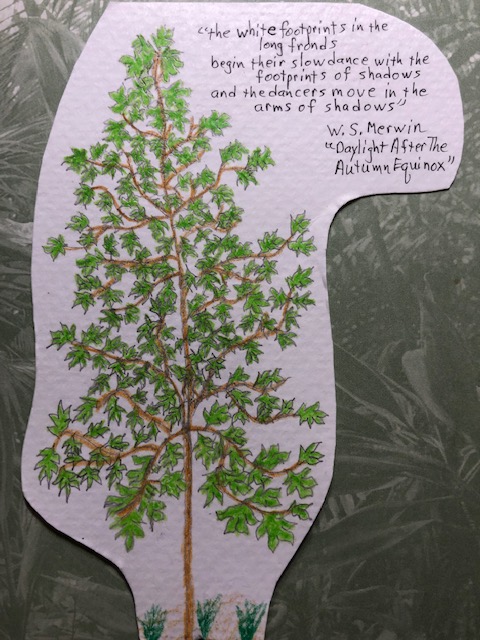 "the white footprints in the
long fronds
begin their slow dance with the
footprints of shadows
and the dancers move in the
arms of shadows"
W. S. Merwin
"Daylight After The
Autumn Equinox"